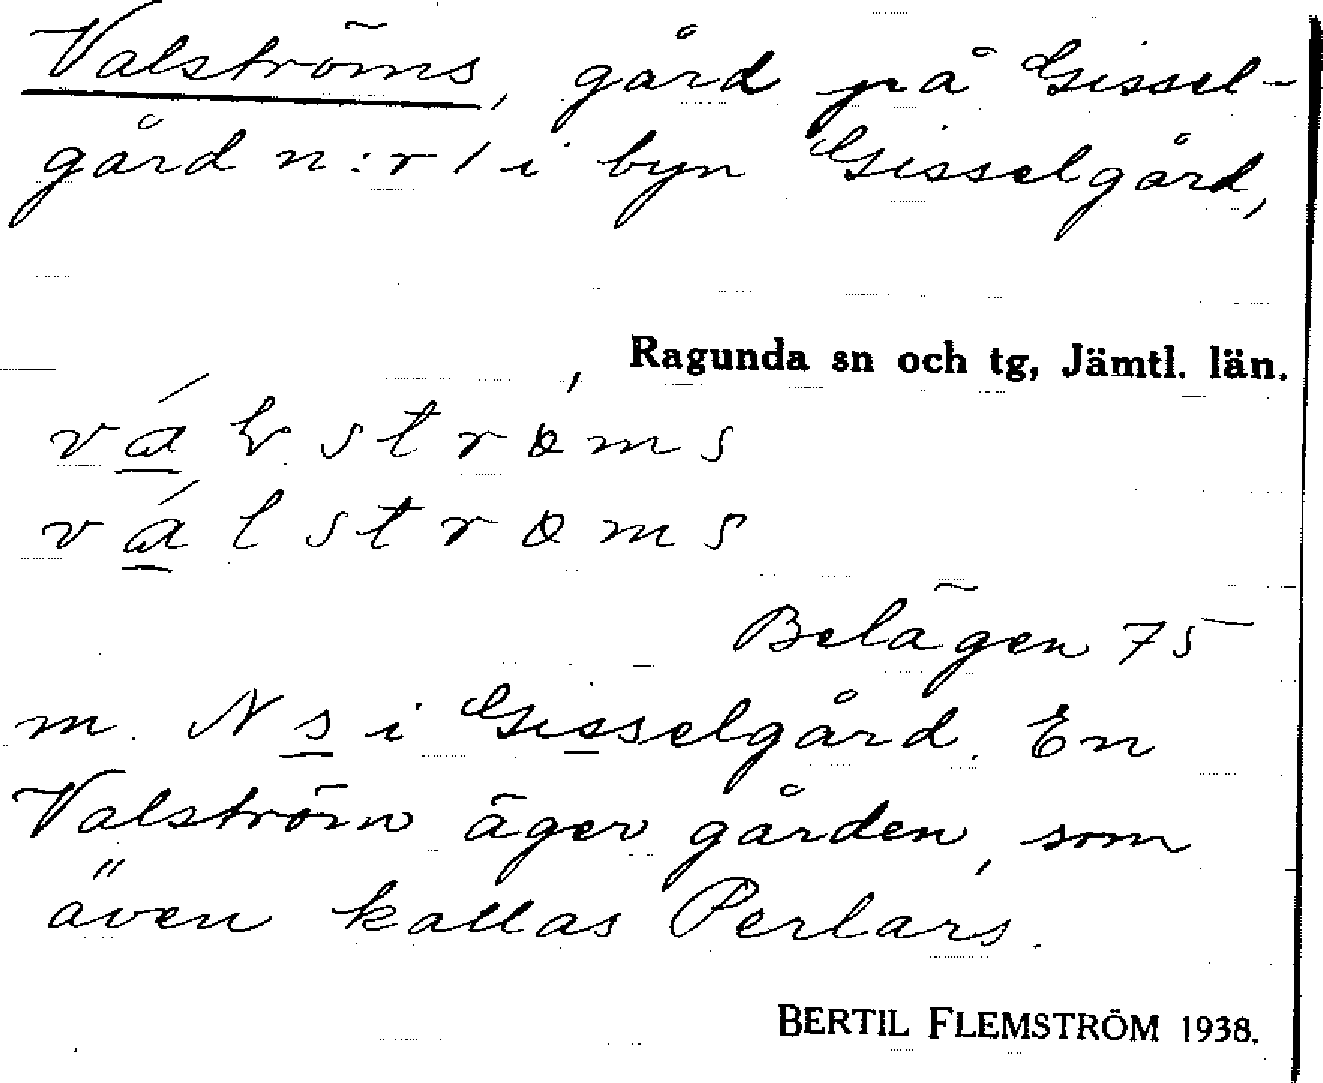 Valströms, gård på Gissel-
gård n:r 1 i byn Gisselgård,
, Ragunda sn och tg, Jämtl. län.
vá̱lstrøms
vá̱lstrøms
Belägen 75
m. N s i Gisselgård. En
Valström äger gården, som
även kallas Perlars.
BERTIL FLEMSTRÖM 1938.